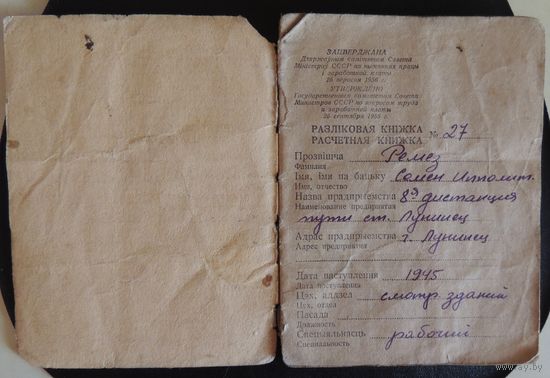 ЗАЦВЕРДЖАНА
Дзяржаўным камітэтам Савета
Міністраў СССР па пытаннях працы
і заработнай платы
26 верасня 1956 г.
УТВЕРЖДЕНО
Государственным комитетом Совета
Министров СССР по вопросам труда
и заработной платы
26 сентября 1956 г.
РАЗЛІКОВАЯ КНІЖКА
РАСЧЕТНАЯ КНИЖКА № 27
Прозвішча Ремез
Фамилия
Імя, імя на бацьку Семен Ипполит.
Имя, отчество
Назва прадпрыемства 8я дистанция
Наименование предприятия
пути ст. Лунинец
Адрас прадпрыемства г. Лунинец
Адрес предприятия
Дата паступлення 1945
Дата поступления
Цэх, аддзел смотр. зданий
Цех, отдел
Пасада
Должность
Спецыяльнасць рабочий
Специальность
www.ay.by